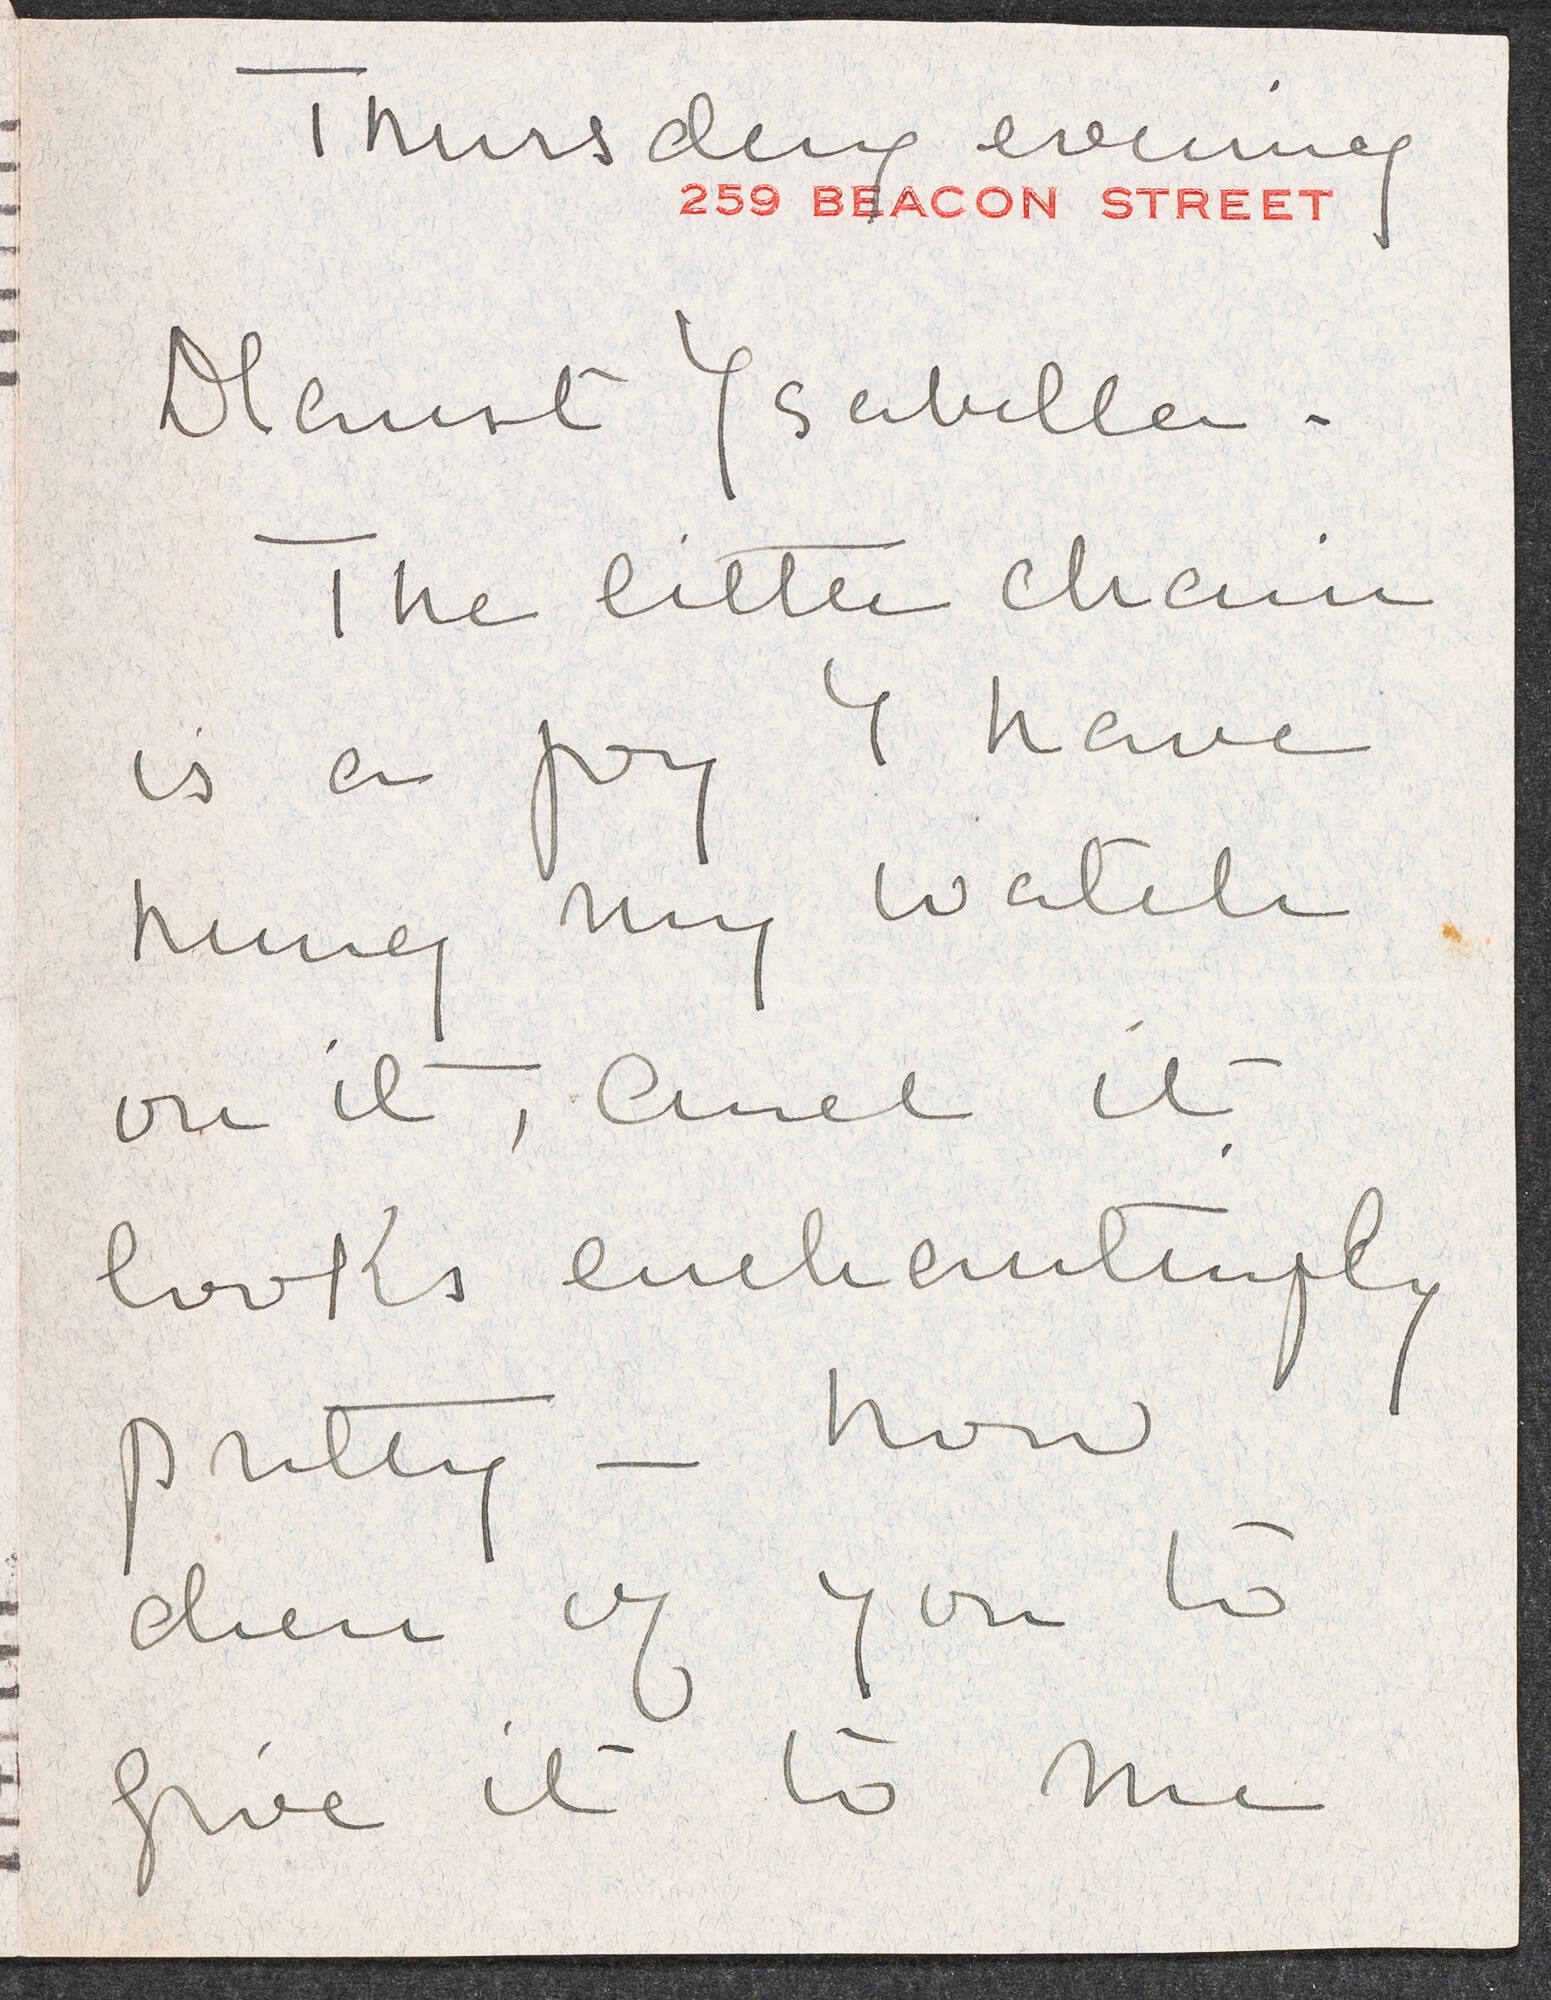 Thursday evening
259 BEACON STREET
Dearest Ysabella -
The little chain
is a joy I have
hung my watch
on it, and it
looks enchantingly
pretty — how
dear of you to
give it to me